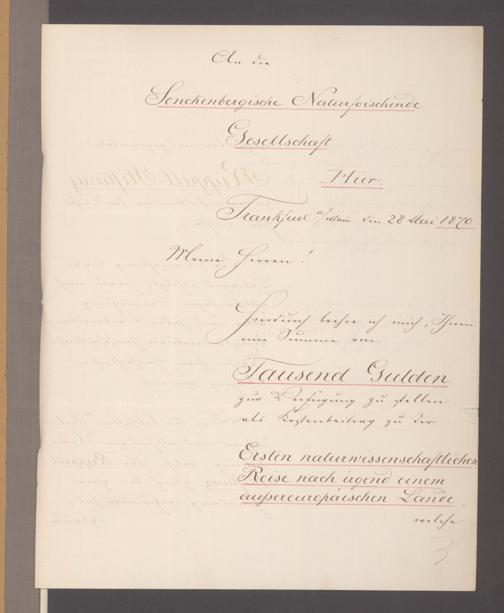 An die
Senckenbergische Naturforschende
Gesellschaft
Hier.
Frankfurt a/Main. den 28 Mai 1870
Meine Herren!
Hierdurch beehre ich mich, Ihnen
eine Summe von
Tausend Gulden
zur Verfügung zu stellen
als Kostenbeitrag zu der
Ersten naturwissenschaftlichen
Reise nach irgend einem
außereuropäischen Lande,
welche